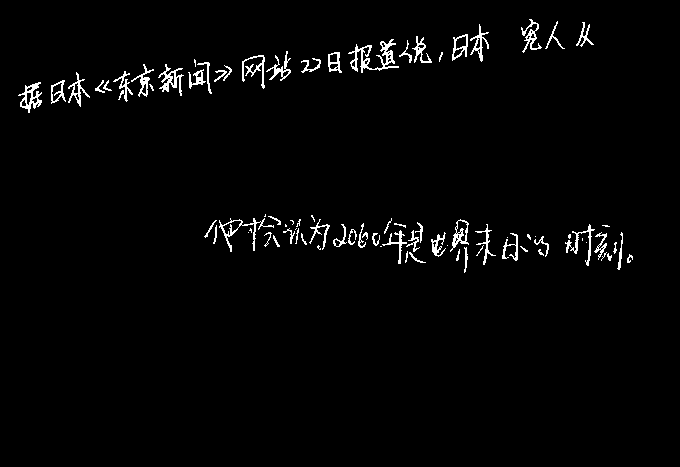 据日本《东京新闻》网站22日报道说,日本 穷人从
他才会认为2060年是世界末日的时刻。